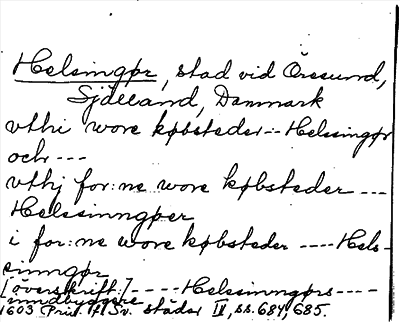 Helsingør, stad vid Öresund,
Sjælland, Danmark
vthi wore købsteder -- Helsingør
och ---
vthj for:ne wore købsteder ---
Helssinngøer
i for:ne wore købsteder ---- Hels-
sinngør
[överskrift:] ---- Helssinngørs ----
inndbyggere
1603 Priv. f. Sv. städer IV, ss. 684, 685.